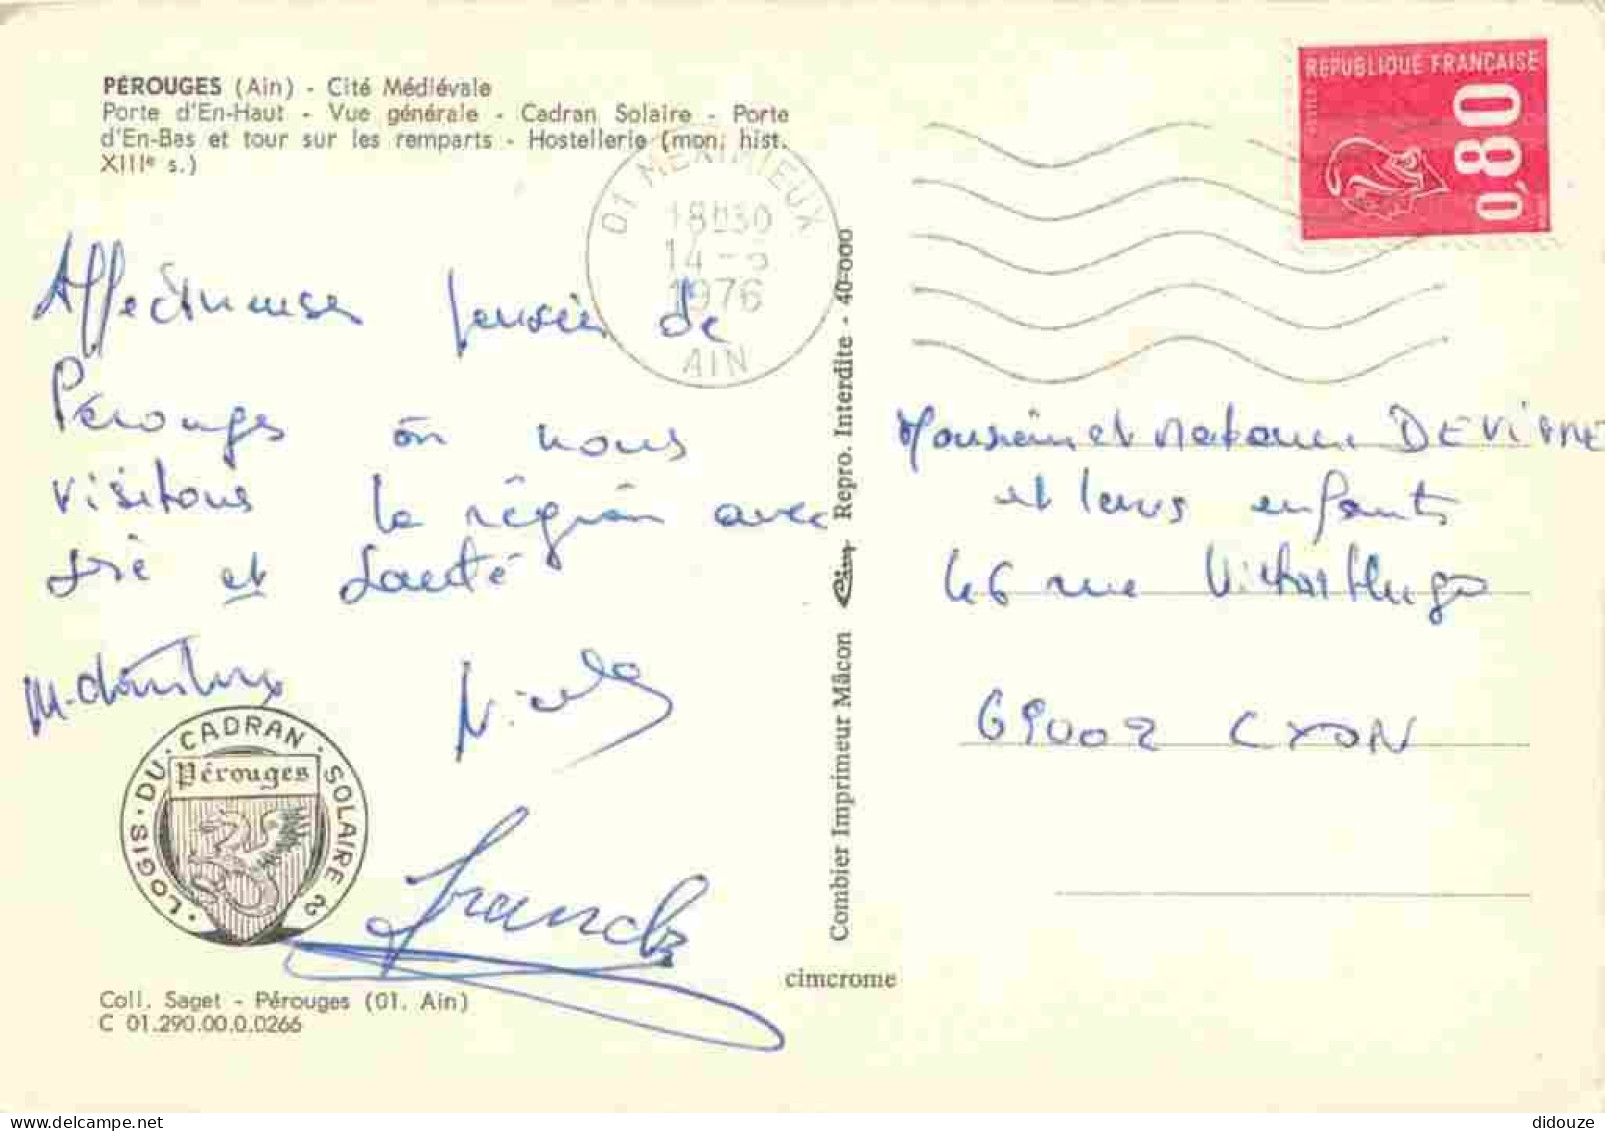 PÉROUGES (Ain) - Cité Médiévale
Porte d'En-Haut - Vue générale - Cadran Solaire - Porte
d'En-Bas et tour sur les remparts - Hostellerie (mon. hist.
XIIIe s.)
REPUBLIQUE FRANÇAISE
0,80
01 MEXIMIEUX
18H30
14 -
1976
AIN
Affectueuses pensées de
Pérouges où nous
visitons la région avec
joie et santé
Franck
LOGIS · DU · CADRAN · SOLAIRE
Pérouges
Coll. Saget - Pérouges (01. Ain)
C 01.290.00.0.0266
Combier Imprimeur Mâcon Cim Repro. Interdite - 40-000
cimcrome
Monsieur et Madame DEVIGNE
et leurs enfants
46 rue Victor Hugo
69002 LYON
didouze